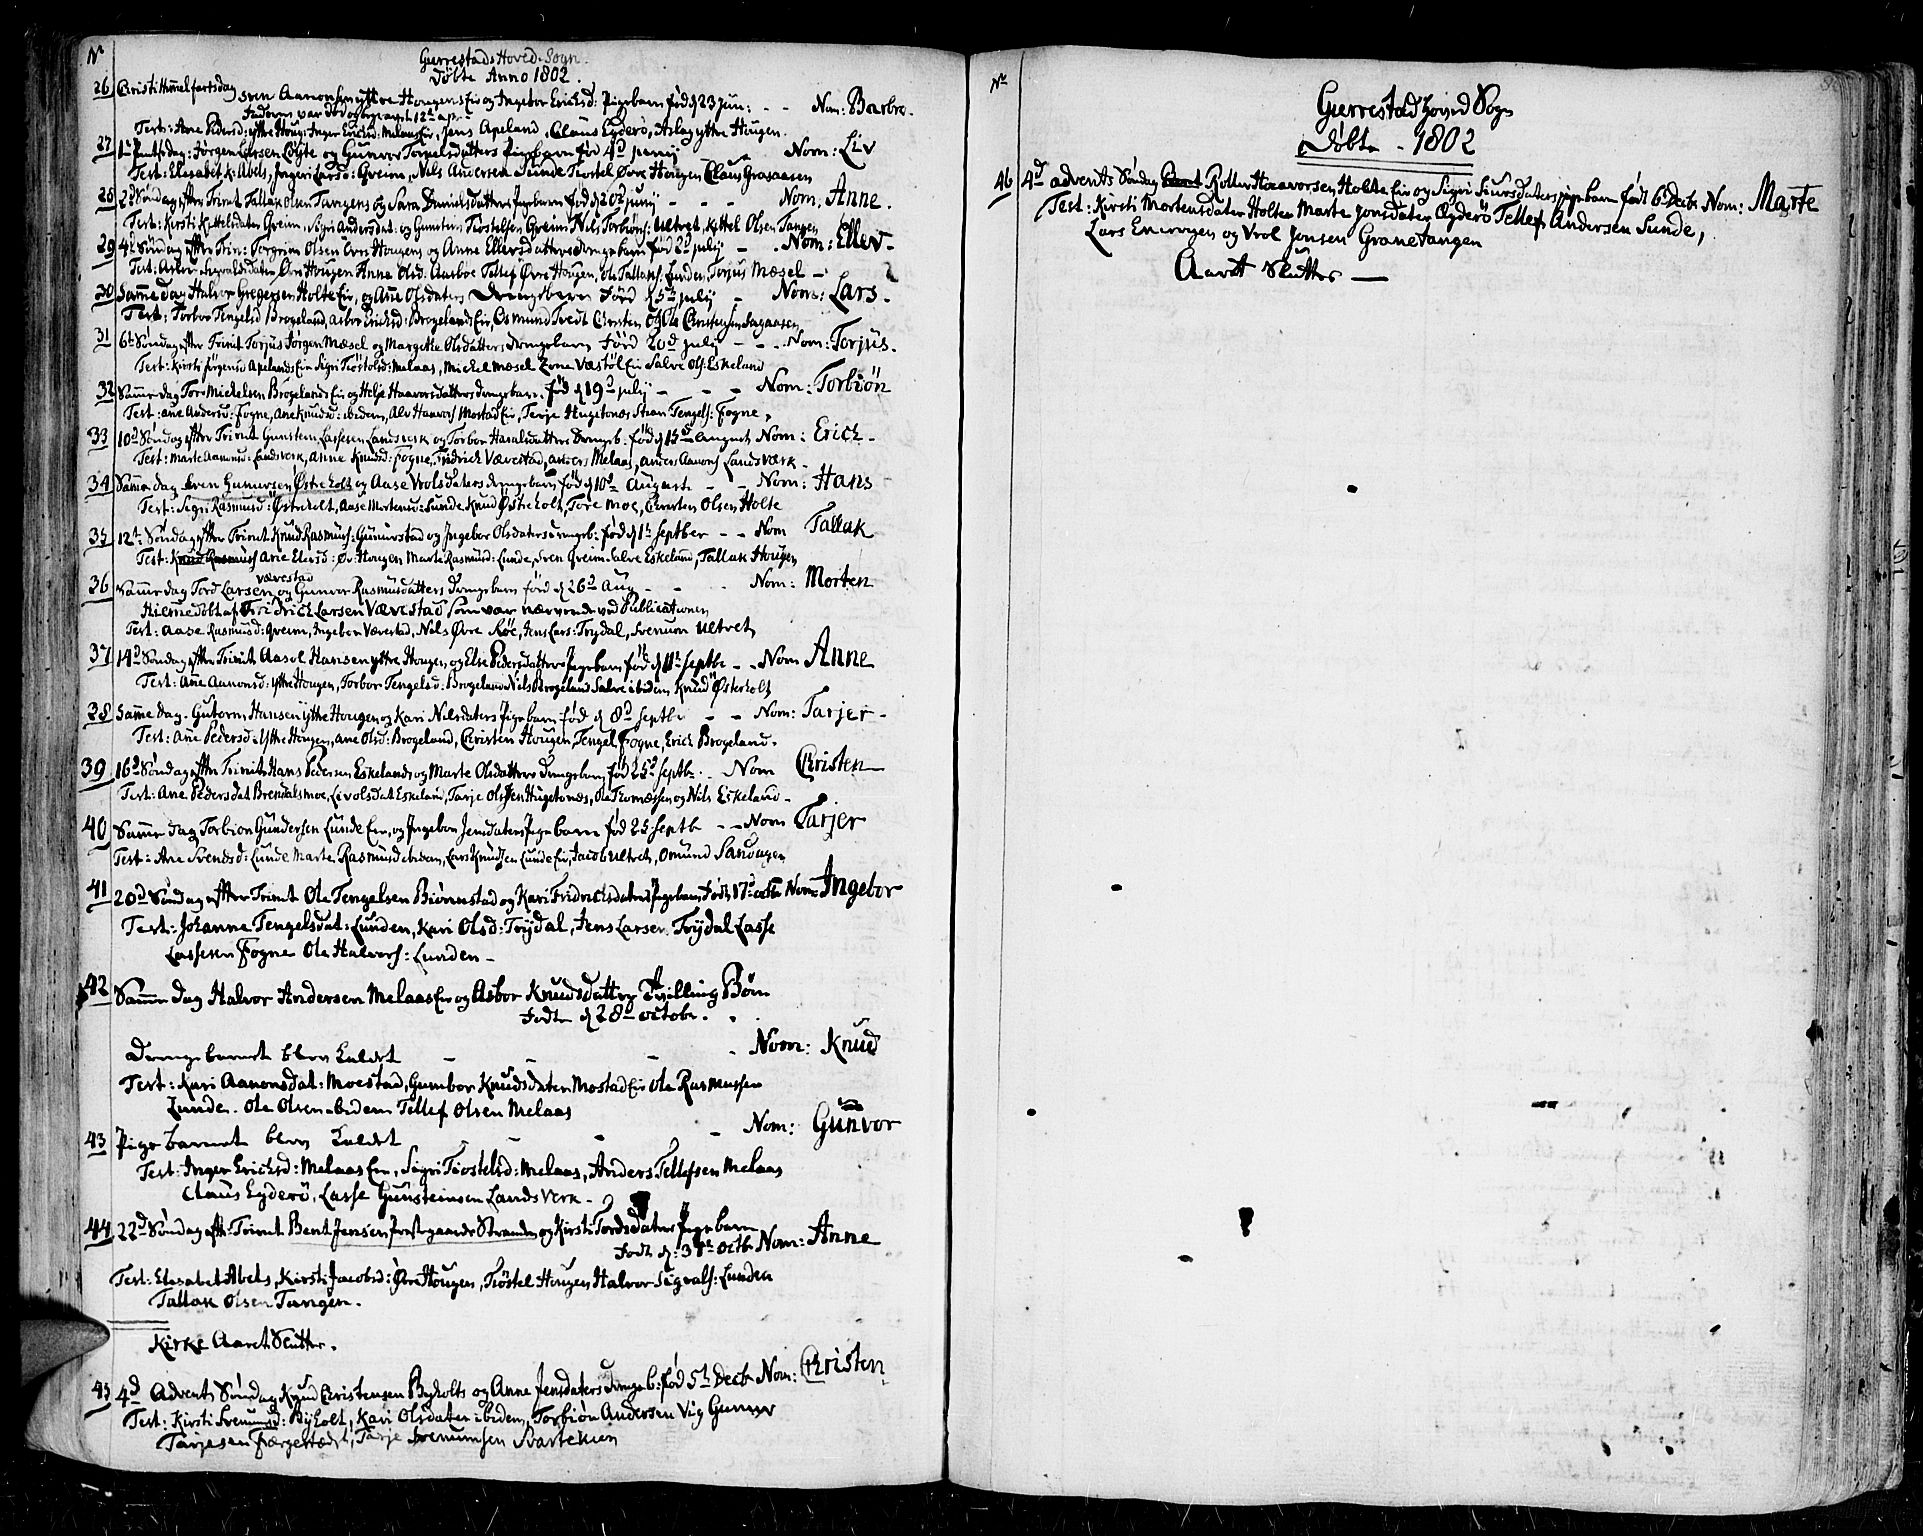 No
Gierrestads Hoved-Sogn.
Døbte Anno 1802.
26 Christi Himmelfartsdag Sven Aanonsen yttre Hougens Eie og Ingebor Erichsd: Pigebarn fød d 23 Jun: - - Nom: Barbro.
Faderen var død og begravet 12te apr.
Test: Ane Pedersd: yttre Houg: Inger Erichsd: Melaas Eie, Jens Apeland, Claus Eyderö, Aslag yttre Hougen.
27 1te Pintsdag: Jörgen Larsen Löyte og Gunvor Torjulsdatters Pigebarn fød 4d junij Nom: Liv
Test: Elisabet K: Abels, Ingeri Larsd: Qreim, Nils Andersen Sunde Tiostel Øvre Hougen Claus Graaaasen
28 2d Söndag efter Trinit Tallak Olsen Tangens og Sara Danielsdatters Pigebarn fød d 20d junij - - - Nom: Anne.
Test: Kirsti Kittelsdater Qreim, Sigri Andersdat: og Gunstein Tiostelsen Qreim Nils Torbiöns: Ueltvet, Kittel Olsen Tangen
29 4d Söndag efter Trin: Torgrim Olsen Øvre Hougens og Anne Ellevsdatters drengebarn fød 2d julij - . Nom: Ellev.
Test: Asbor Sigvaldsdater Øvre Hougen Anne Olsd: Aasboe Tellef Øvre Hougen, Ole Tallaks: Lunden, Torjus Mæsel -
30 Samme dag Halvor Gregersen Holte Eie, og Ane Olsdaters Drengebarn Född d 5d julij - Nom: Lars.
Test: Torbor Tengelsd Brogeland, Asbor Erichsd: Brogelands Eie, Osmund Tvedt Christen og Ole Christensen Aagaasen
31 6te Söndag efter Trinit Torjus Jörgens: Mæsel og Margethe Olsdatters drengebarn Född 20d julij - - . . Nom: Torjus.
Test: Kirsti Jörgensd Apelands Eie Sigri Tiöstolsd: Melaas, Michel Mæsel Zone Væstöl Eie Salve Ols: Eskeland
32 Samme dag Tor Michelsen Brogelands Eie og Helje Haavorsdatters drengebarn. fød d 19d julij - - - Nom: Torbiön
Test: Ane Andersd: Fogne, Ane Knudsd: ibidem, Alv Haavors: Mostad Eie, Terje Hugetonæs Stian Tengels: Fogne,
33 10d Söndag efter Trinit Gunstein Lassesen Landsverk og Torbor Haralsdatters Drengeb: fød d 15d August Nom: Erich -
Test: Marte Aanonsd: Landsverk, Anne Knudsd: Fogne, Fridrich Værestad, Anders Melaas, Anders Aanons: Landsværk -
34 Samme dag Sven Gunversen Østreholt og Aase Vrolsdaters drengebarn fød d 10d Augusti - - Nom: Hans
Test: Sigri Rasmusd: Østreholt, Aase Mortensd: Sunde Knud Østreholt, Tore Moe, Christen Olsen Holte
35 12te Söndag efter Trinit Knud Rasmus: Gunnerstad og Ingebor Olsdaters drengeb: fød d 1te Septber - - Nom Tallak
Test: Knud Rasmus Ane Elevsd: Øv: Hougen Marte Rasmusd: Lunde, Sven Qreim Salve Eskeland, Tallak Hougen
36 Samme dag Tord Larsen Værestad og Gunvor Rasmusdatters Drengebarn född d 26d Aug - - - Nom: Morten
Hiemmedöbt af Fridrich Larsen Værestad som var nærværende ved Publicationen
Test: Aase Rasmusd: Qreim, Ingebor Værestad, Nils Øvre Röe, Jens Lars: Trydal, Svenum Ueltvet,
37 14d Söndag efter Trinit Aasol Hansen yttre Hougen, og Else Pedersdatters Pigebarn fød d 11te Septbr - - Nom Anne
Test: Ane Aanonsd: yttre Hougen, Torbor Tengelsd: Brogeland Nils Brogeland Salve ibidem Knud Österholt
38 Samme dag. Gutorm Hansen ytthe Hougen og Kari Nilsdaters Pigebarn fød d 8d Septbr - - Nom: Tarjer -
Test: Ane Pedersd: Ytthe Hougen, Ane Olsd: Brogeland, Christen Hougen, Tengel Fogne, Erich Brogeland.
39 16d Söndag efter Trinit Hans Pedersen Eskelands og Marte Olsdatters Drengebarn fød 25d Septbr. . Nom Christen
Test: Ane Pedersdat Brendalsmoe, Liv olsdat Eskeland, Tarje Olssen Hugetonæs, Ole Thomæssen og Nils Eskeland -
40 Samme dag Torbion Gundersen Lunde Eie, og Ingebor Jensdaters Pigebarn fød 25 Septb - - Nom Tarjer
Test: Ane Svendsd: Lunde Marte Rasmusd ibidem, Lars Knudsen Lunde Eie, Jacob Ueltvet, Omund Sandaagen
41 20d Söndag efter Trinit Ole Tengelsen Biörnestad og Kari Fridrichsdaters Pigebarn Födt 17d octbr Nom: Ingebor
Test: Johanne Tengelsdat: Lunden, Kari Olsd: Trydal, Jens Larsen Trydal Lasse
Lassesen Fogne Ole Halvors: Lunden -
42 Samme dag Halvor Andersen Melaas Eie og Asbor Knudsdatter Tvilling Børn
Födte d 28d octobr. .
Drengebarnet blev kaldet - - - - Nom: Knud
Test: Kari Aanonsdat: Moestad, Gunbor Knudsdater Mostad Eie Ole Rasmussen
Lunde. Ole Olsen ibidem Tellef Olsen Melaas
43 Pige barnet blev kaldet - - - - Nom: Gunvor
Test: Inger Erichsd: Melaas Eie, Sigri Tiostelsd: Melaas, Anders Tellefsen Melaas
Claus Eyderö, Lasse Gunsteinsen Landsverk -
44 22d Söndag eft: Trinit Bent Jensen Præstegaards Stranden og Kirsti Tordsdaters Pigebarn
Födt d: 31te Octbr Nom: Anne
Test: Elisabet Abels, Kirsti Jacobsd: Øvre Hougen, Tiöstel Hougen Halvor Sigvals: Lunden
Tallak Olsen Tangen.
Kirke Aaret Slutter.
45 4d Advents Søndag Knud Christensen Byholts og Anne Jensdaters drengeb: fød 5te Decb Nom: Christen
Test: Kirsti Svenumsd: Byholt, Kari Olsdater ibidem, Torbiön Andersen Vig Gunner
Tarjesen Færgestædt, Tarje Svenumsen Svartekien
No
Gierrestad hoved Sogn
Døbte - 1802
46 4d advents Søndag Rollev Haavorsen Holte Eie og Sigri Siursdaters pige barn født 6 Decbr Nom: Marte
Test: Kirsti Mortensdater Holte Marte Jonsdater Eyderö Tellef Andersen Sunde,
Lars Enervogen og Vrol Jonsen Granetangen
Aaret Slutter -